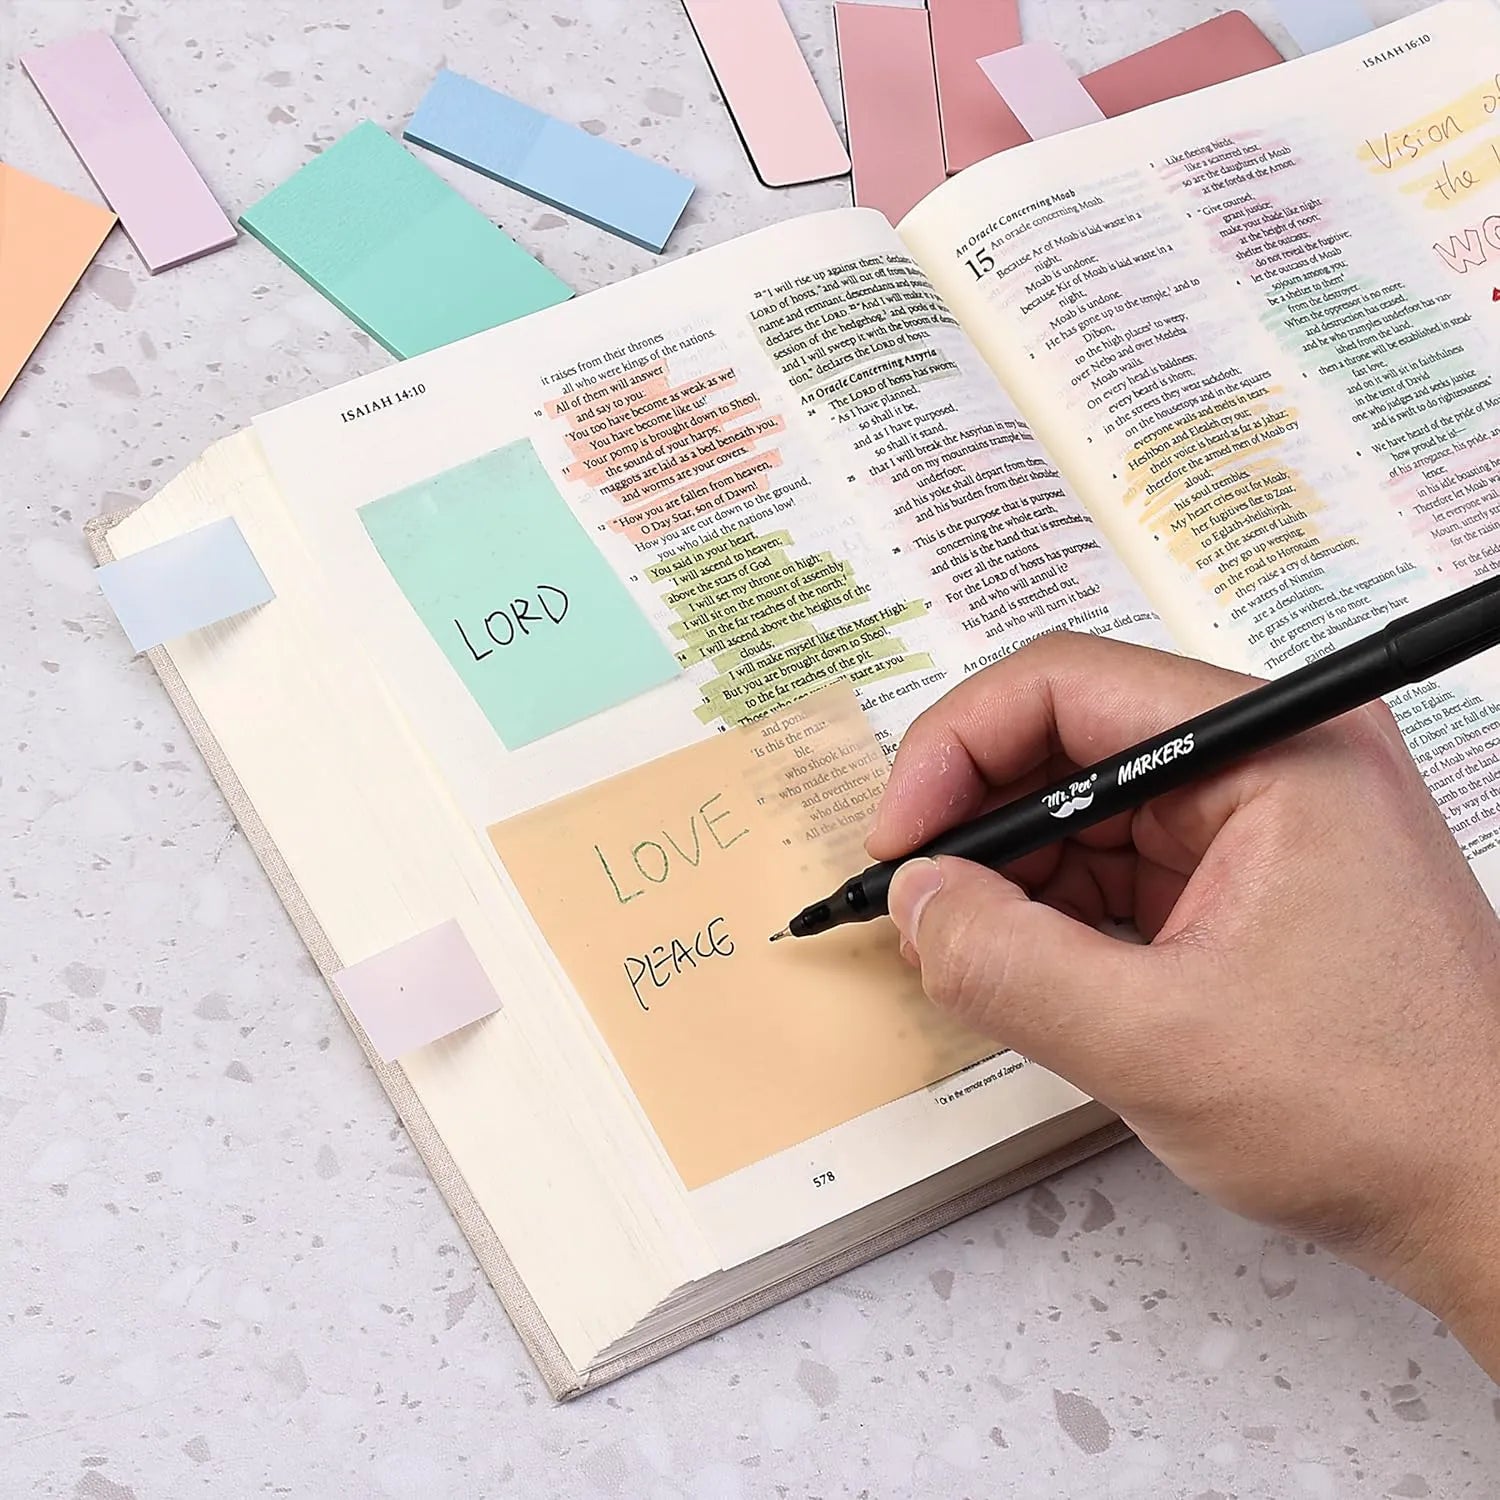 ISAIAH 14:10
it raises from their thrones
all who were kings of the nations.
10 All of them will answer
and say to you:
'You too have become as weak as we!
You have become like us!'
11 Your pomp is brought down to Sheol,
the sound of your harps;
maggots are laid as a bed beneath you,
and worms are your covers.
12 "How you are fallen from heaven,
O Day Star, son of Dawn!
How you are cut down to the ground,
you who laid the nations low!
13 You said in your heart,
'I will ascend to heaven;
above the stars of God
I will set my throne on high;
I will sit on the mount of assembly
in the far reaches of the north;
14 I will ascend above the heights of the
clouds;
I will make myself like the Most High.'
15 But you are brought down to Sheol,
to the far reaches of the pit.
16 Those who see you will stare at you
and pond
'Is this the man
ade the earth trem-
ble,
who shook kingdoms,
17 who made the world like
and overthrew its
who did not let
18 All the kings of
LORD
LOVE
PEACE
578
22 "I will rise up against them," declares
LORD of hosts, "and will cut off from
name and remnant, descendants and
declares the LORD. 23 "And I will make it a
session of the hedgehog, and pools of
and I will sweep it with the broom of
tion," declares the LORD of hosts.
An Oracle Concerning Assyria
24 The LORD of hosts has sworn:
"As I have planned,
so shall it be,
and as I have purposed,
so shall it stand,
25 that I will break the Assyrian in my
and on my mountains trample him
underfoot;
and his yoke shall depart from them,
and his burden from their shoulder."
26 This is the purpose that is purposed
concerning the whole earth,
and this is the hand that is stretched out
over all the nations.
27 For the LORD of hosts has purposed,
and who will annul it?
His hand is stretched out,
and who will turn it back?
An Oracle Concerning Philistia
Ahaz died came
Or in the remote parts of Zaphon
ISAIAH 16:10
An Oracle Concerning Moab
15 An oracle concerning Moab.
Because Ar of Moab is laid waste in a
night,
Moab is undone;
because Kir of Moab is laid waste in a
night,
Moab is undone.
2 He has gone up to the temple, and to
Dibon,
to the high places to weep;
over Nebo and over Medeba
Moab wails.
On every head is baldness;
every beard is shorn;
3 in the streets they wear sackcloth;
on the housetops and in the squares
everyone wails and melts in tears.
4 Heshbon and Elealeh cry out;
their voice is heard as far as Jahaz;
therefore the armed men of Moab cry
aloud;
his soul trembles.
5 My heart cries out for Moab;
her fugitives flee to Zoar,
to Eglath-shelishiyah.
For at the ascent of Luhith
they go up weeping;
on the road to Horonaim
they raise a cry of destruction;
6 the waters of Nimrim
are a desolation;
the grass is withered, the vegetation fails,
the greenery is no more.
Therefore the abundance they have
gained
nd of Moab;
hes to Eglaim;
reaches to Beer-elim.
of Dibon are full of
2 Like fleeing birds,
like a scattered nest,
so are the daughters of Moab
at the fords of the Arnon.
3 "Give counsel;
grant justice;
make your shade like night
at the height of noon;
shelter the outcasts;
do not reveal the fugitive;
4 let the outcasts of Moab
sojourn among you;
be a shelter to them
from the destroyer.
When the oppressor is no more,
and destruction has ceased,
and he who tramples underfoot has van-
ished from the land,
5 then a throne will be established in stead-
fast love,
and on it will sit in faithfulness
in the tent of David
one who judges and seeks justice
and is swift to do righteousness."
6 We have heard of the pride of Moab
how proud he is!—
of his arrogance, his pride, and
Vision of
the
WO
Mr. Pen® MARKERS